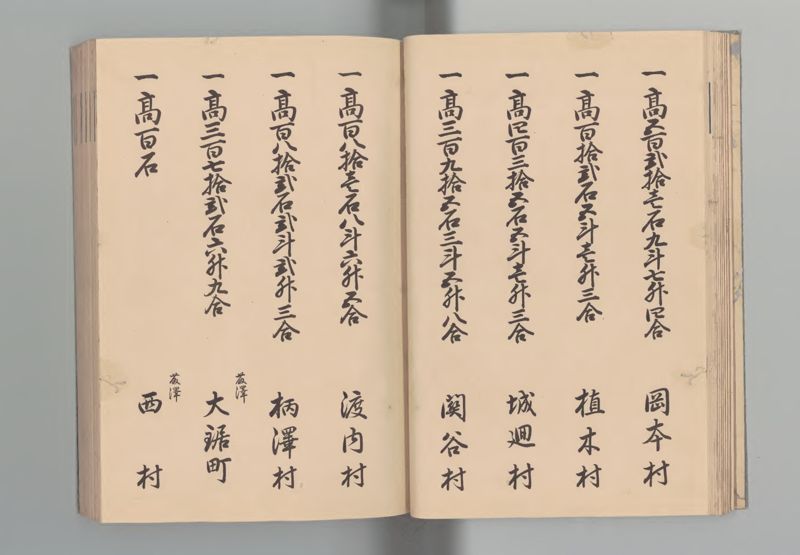 一高五百弐拾壱石九斗七升四合 岡本村
一高百拾弐石五斗壱升三合 植木村
一高四百三拾五石五斗壱升三合 城廻村
一高三百九拾五石三斗五升八合 関谷村
一高百八拾壱石八斗六升五合 渡内村
一高百八拾弐石弐斗弐升三合 柄澤村
一高三百七拾弐石六升九合 藤澤 大鋸町
一高百石 藤澤 西村